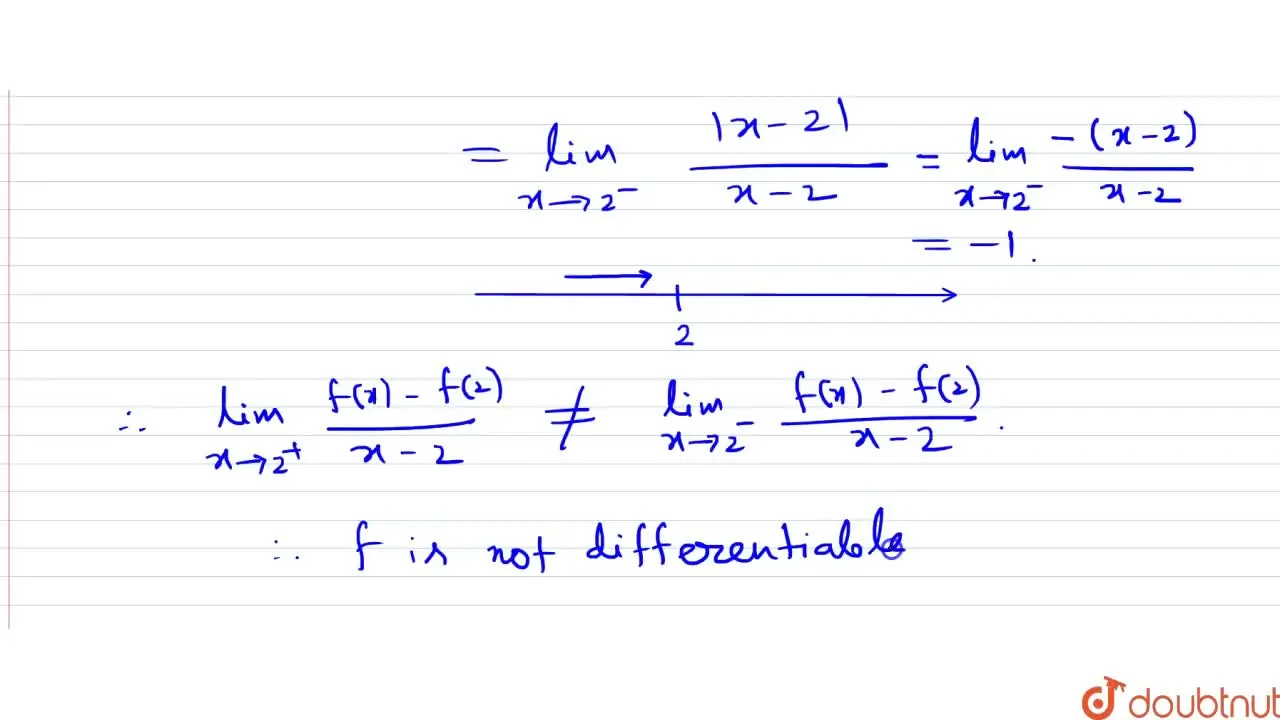 = lim x→2⁻ |x-2| / x-2 = lim x→2⁻ -(x-2) / x-2
= -1.
2
∴ lim x→2⁺ f(x) - f(2) / x-2 ≠ lim x→2⁻ f(x) - f(2) / x-2 .
∴ f is not differentiable
doubtnut